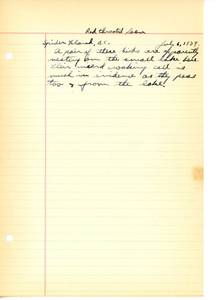 Red throated Loon
Spider Island, B.C. July 6, 1939.
A pair of these birds are apparently
nesting on the small lake here
their weird croaking call is
much in evidence as they pass
to & from the lake.